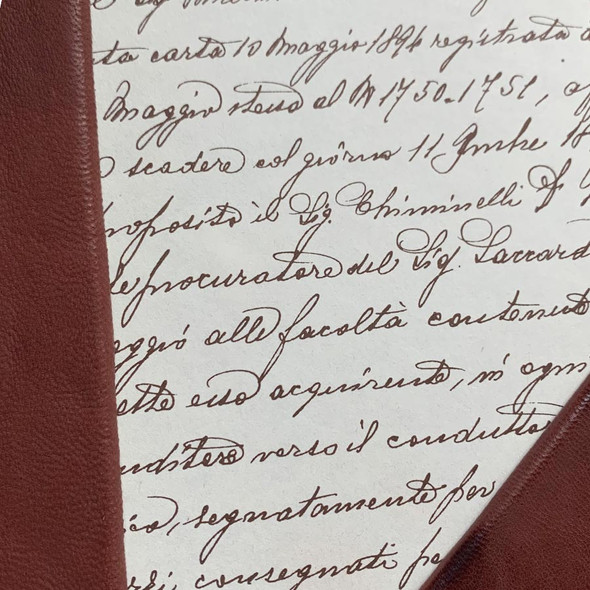 ta carta 10 Maggio 1894 registrata a
Maggio stesso al N 1750-1751,
scadere col giorno 11 9mbre 18
proposito il Sig. Chiminelli
le procuratore del Sig. Saccard
aggiò alle facoltà contenute
ette esso acquirente, in ogni
uditore verso il conduttor
ica, segnatamente per
consegnati pe